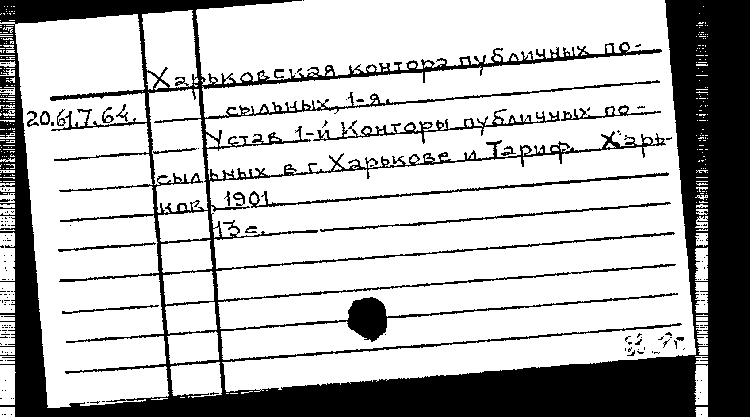 Харьковская контора публичных по-
20.61.7.64. сыльных, 1-я.
Устав 1-й Конторы публичных по-
сыльных в г. Харькове и Тариф. Харь-
ков, 1901.
13 с.